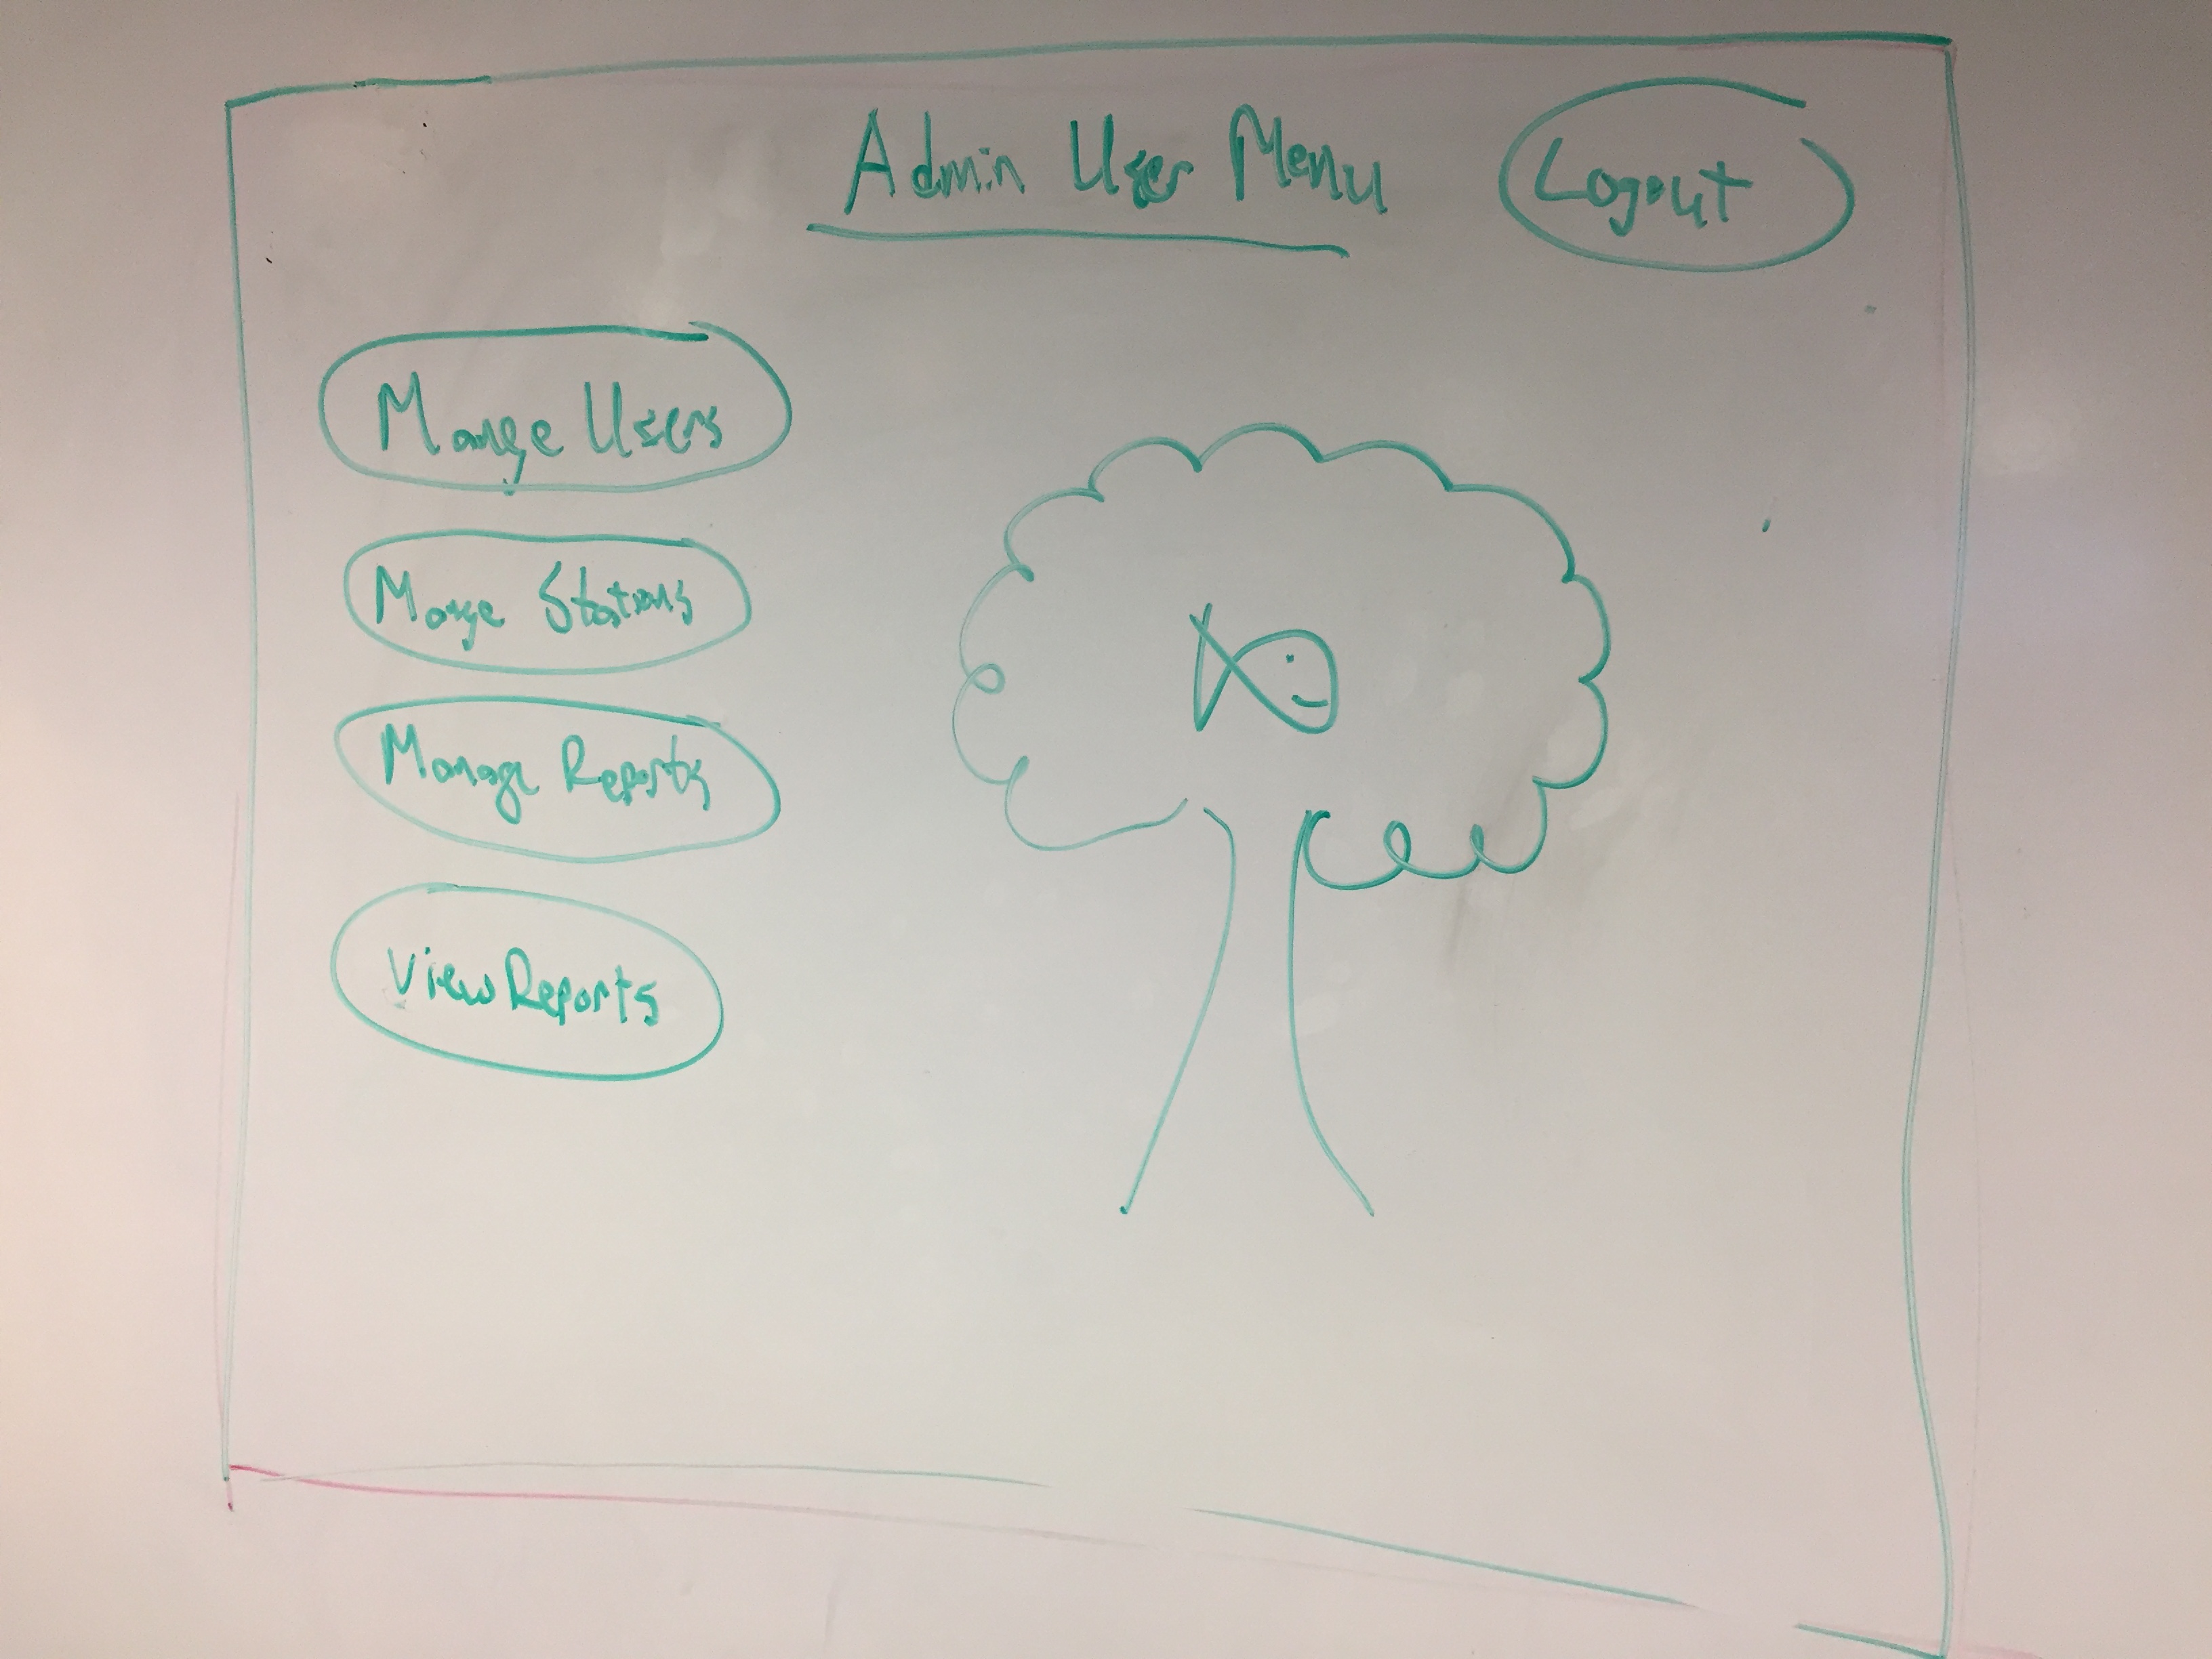 Admin User Menu
Logout
Manage Users
Manage Stations
Manage Reports
View Reports